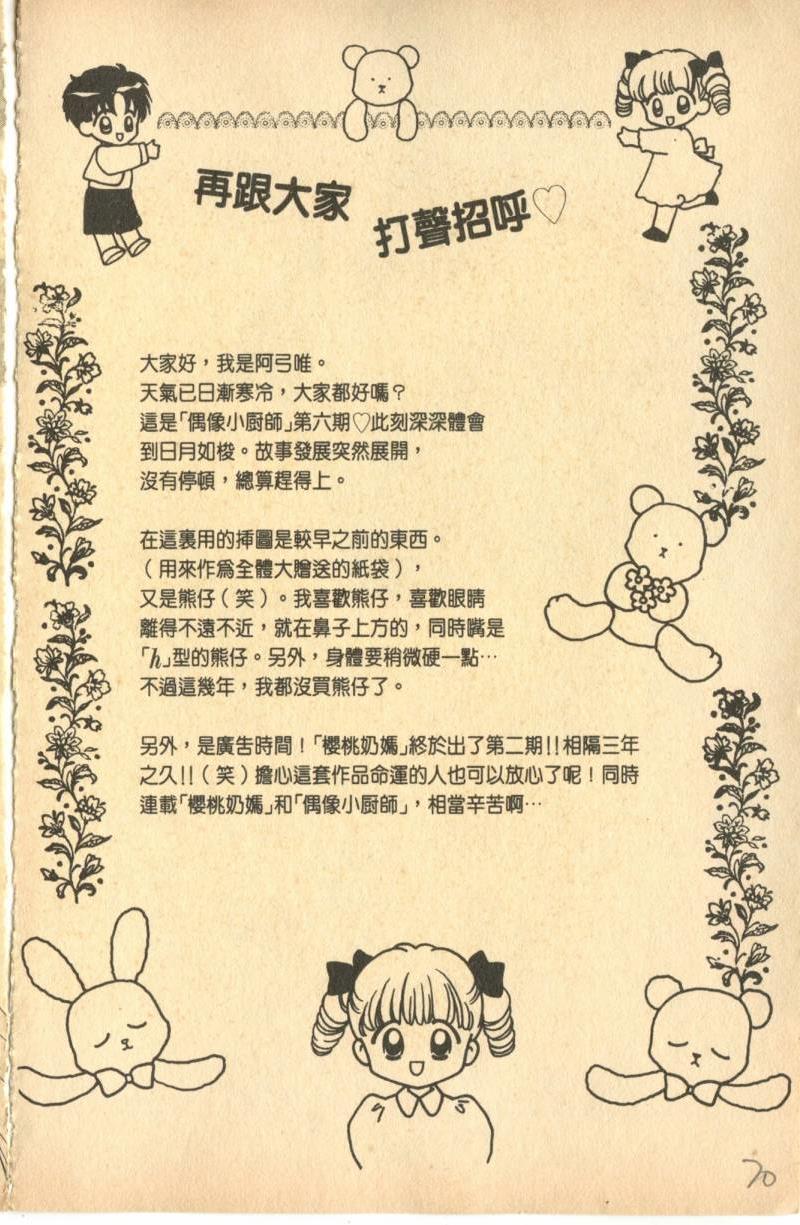 再跟大家
打聲招呼♡
大家好，我是阿弓唯。
天氣已日漸寒冷，大家都好嗎？
這是「偶像小厨師」第六期♡此刻深深體會
到日月如梭。故事發展突然展開，
沒有停頓，總算趕得上。
在這裏用的挿圖是較早之前的東西。
（用來作為全體大贈送的紙袋），
又是熊仔（笑）。我喜歡熊仔，喜歡眼睛
離得不遠不近，就在鼻子上方的，同時嘴是
「h」型的熊仔。另外，身體要稍微硬一點…
不過這幾年，我都沒買熊仔了。
另外，是廣告時間！「櫻桃奶媽」終於出了第二期!!相隔三年
之久!!（笑）擔心這套作品命運的人也可以放心了呢！同時
連載「櫻桃奶媽」和「偶像小厨師」，相當辛苦啊…
70